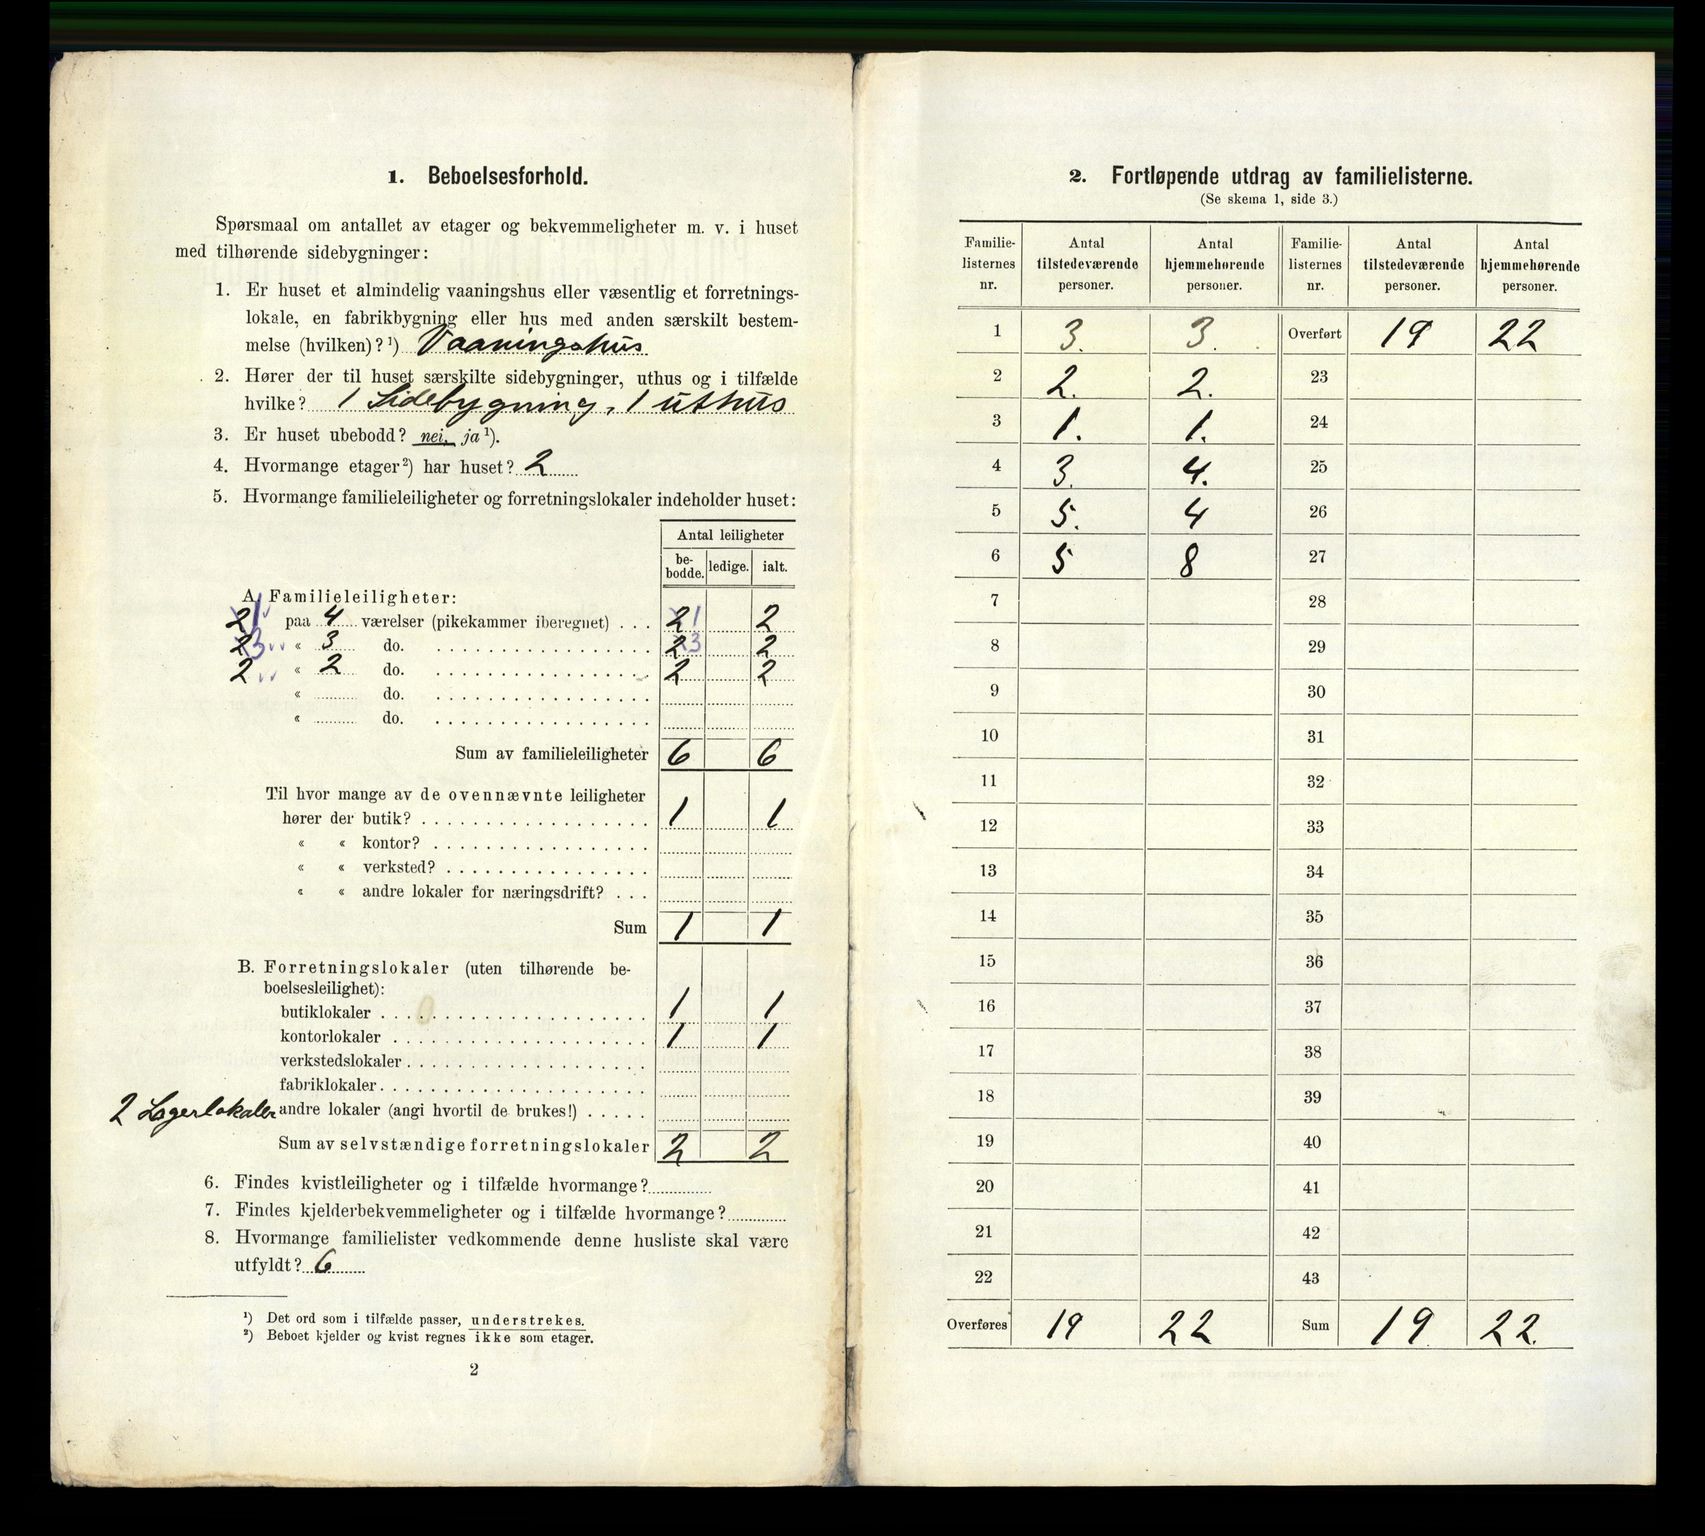 1. Beboelsesforhold.
Spørsmaal om antallet av etager og bekvemmeligheter m. v. i huset
med tilhørende sidebygninger:
1. Er huset et almindelig vaaningshus eller væsentlig et forretnings-
lokale, en fabrikbygning eller hus med anden særskilt bestem-
melse (hvilken)? ¹) Vaaningshus
2. Hører der til huset særskilte sidebygninger, uthus og i tilfælde
hvilke? 1 Sidebygning, 1 uthus
3. Er huset ubebodd? nei, ja ¹).
4. Hvormange etager ²) har huset? 2
5. Hvormange familieleiligheter og forretningslokaler indeholder huset:
Antal leiligheter
be-bodde. ledige. ialt.
A. Familieleiligheter:
2 1 paa 4 værelser (pikekammer iberegnet) . . . 2 1 2
2 3 « 3 do. 2 3 2
2 « 2 do. 2 2
« do.
« do.
Sum av familieleiligheter 6 6
Til hvor mange av de ovennævnte leiligheter
hører der butik? 1 1
« « kontor?
« « verksted?
« « andre lokaler for næringsdrift? . . .
Sum 1 1
B. Forretningslokaler (uten tilhørende be-
boelsesleilighet):
butiklokaler 1 1
kontorlokaler 1 1
verkstedslokaler
fabriklokaler
2 Lagerlokaler andre lokaler (angi hvortil de brukes!) . . . . .
Sum av selvstændige forretningslokaler 2 2
6. Findes kvistleiligheter og i tilfælde hvormange?
7. Findes kjelderbekvemmeligheter og i tilfælde hvormange?
8. Hvormange familielister vedkommende denne husliste skal være
utfyldt? 6
¹) Det ord som i tilfælde passer, understrekes.
²) Beboet kjelder og kvist regnes ikke som etager.
2
2. Fortløpende utdrag av familielisterne.
(Se skema 1, side 3.)
Familie- Antal Antal Familie- Antal Antal
listernes tilstedeværende hjemmehørende listernes tilstedeværende hjemmehørende
nr. personer. personer. nr. personer. personer.
1 3. 3. Overført 19 22
2 2. 2. 23
3 1. 1. 24
4 3. 4. 25
5 5. 4 26
6 5 8 27
7 28
8 29
9 30
10 31
11 32
12 33
13 34
14 35
15 36
16 37
17 38
18 39
19 40
20 41
21 42
22 43
Overføres 19 22 Sum 19 22.